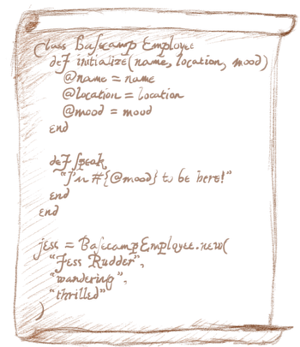 Class Basecamp Employee
def initialize(name, location, mood)
@name = name
@location = location
@mood = mood
end
def speak
"I'm #{@mood} to be here!"
end
end
jess = BasecampEmployee.new(
"Jess Rudder",
"wandering",
"thrilled"
)